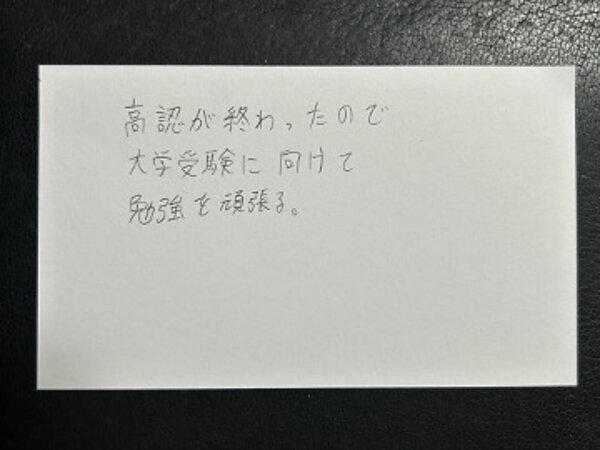 高認が終わったので
大学受験に向けて
勉強を頑張る。